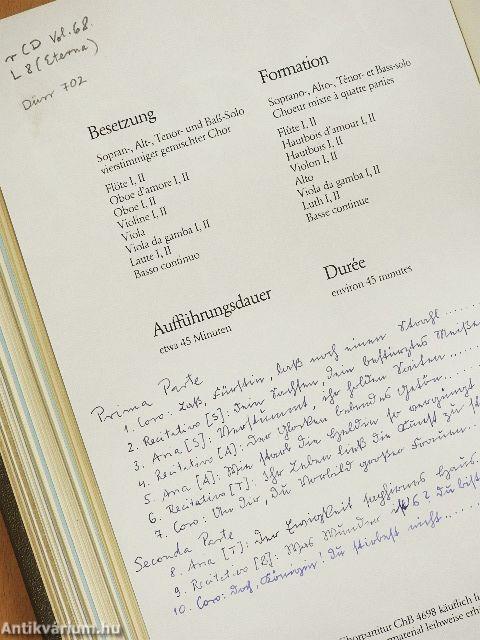 r CD Vol. 68.
L 8 (Eterna)
Dürr 702
Besetzung
Sopran-, Alt-, Tenor- und Baß-Solo
vierstimmiger gemischter Chor
Flöte I, II
Oboe d'amore I, II
Oboe I, II
Violine I, II
Viola
Viola da gamba I, II
Laute I, II
Basso continuo
Formation
Soprano-, Alto-, Ténor- et Bass-solo
Choeur mixte à quatre parties
Flûte I, II
Hautbois d'amour I, II
Hautbois I, II
Violon I, II
Alto
Viola da gamba I, II
Luth I, II
Basse continue
Aufführungsdauer
etwa 45 Minuten
Durée
environ 45 minutes
Prima Parte
1. Coro: Laß, Fürstin, laß noch einen Strahl
2. Recitativo [S]: Dein Sachsen, dein bestürztes Meißen
3. Aria [S]: Verstummt, ihr holden Saiten
4. Recitativo [A]: Der Glocken bebendes Getön
5. Aria [A]: Wie starb die Heldin so vergnügt
6. Recitativo [T]: Ihr Leben ließ die Kunst zu
7. Coro: An dir, du Vorbild großer Frauen
Seconda Parte
8. Aria [T]: Der Ewigkeit saphirnes Haus
9. Recitativo [B]: Was Wunder ists? Du bist
10. Coro: Doch, Königin! Du stirbest nicht
Chorpartitur ChB 4698 käuflich
material leihweise
Antikvárium.hu